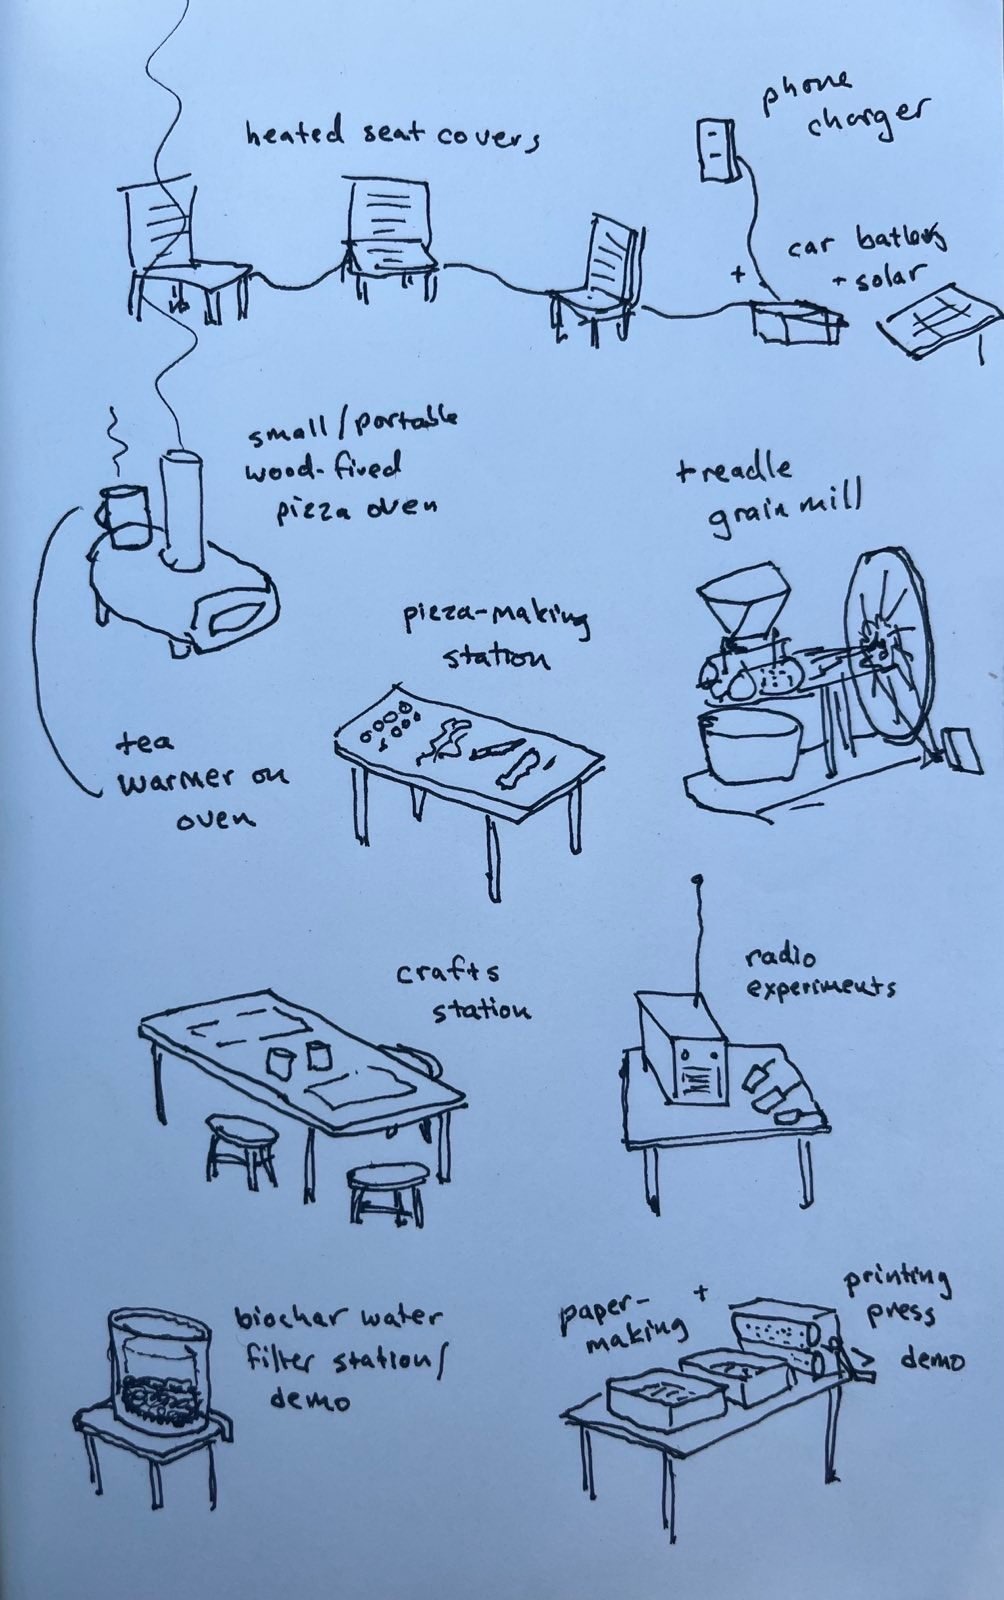 phone
charger
heated seat covers
car battery
+ solar
+
small/portable
wood-fired
pizza oven
treadle
grain mill
pizza-making
station
tea
warmer on
oven
crafts
station
radio
experiments
biochar water
filter station/
demo
paper-
making
+
printing
press
demo